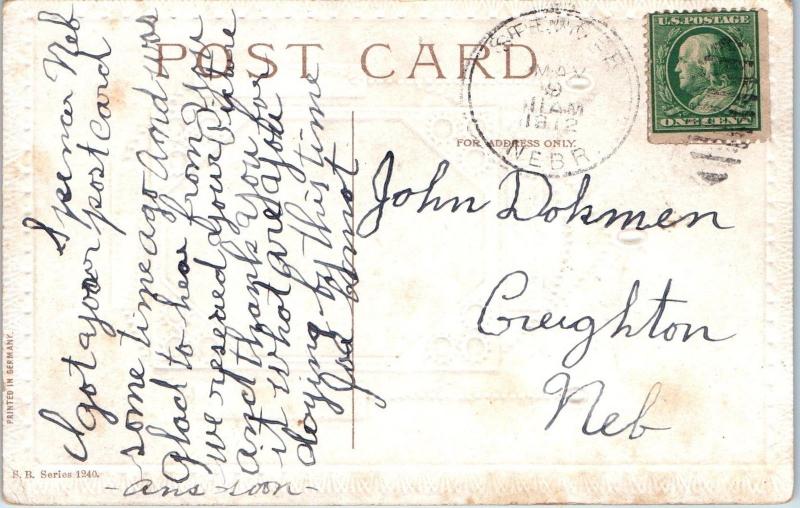 POST CARD
SPENCER
MAY
9
11 AM
1912
NEBR
U.S. POSTAGE
ONE CENT
FOR ADDRESS ONLY.
Spencer Neb
I got your post card
some time ago and was
Glad to hear from you
we reseved your picture
and thank you for
it what are you
doying by this time
- ans soon -
John Dokmen
Creighton
Neb
PRINTED IN GERMANY.
S. B. Series 1240.